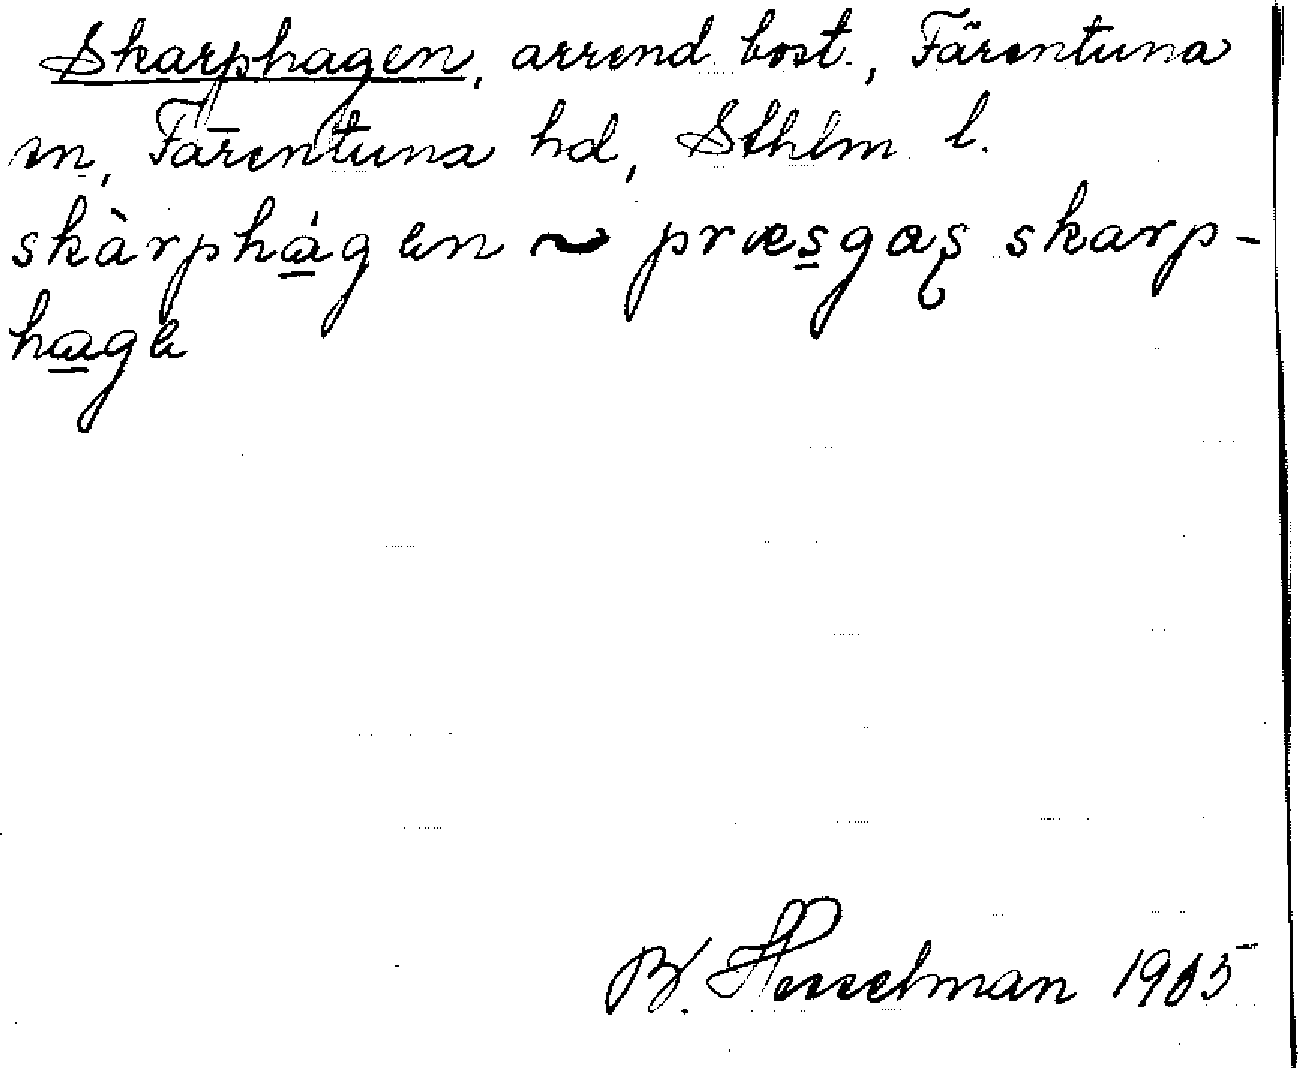 Skarphagen, arrend. bost., Färentuna
sn, Färentuna hd, Sthlm l.
skàrphágen ~ præsgaş skarp-
hage
B. Hesselman 1905